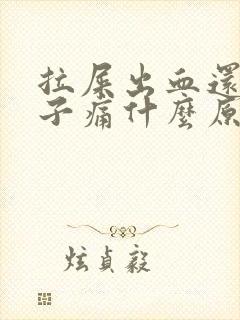 拉屎出血還
子痛什麼原
炫貞毅